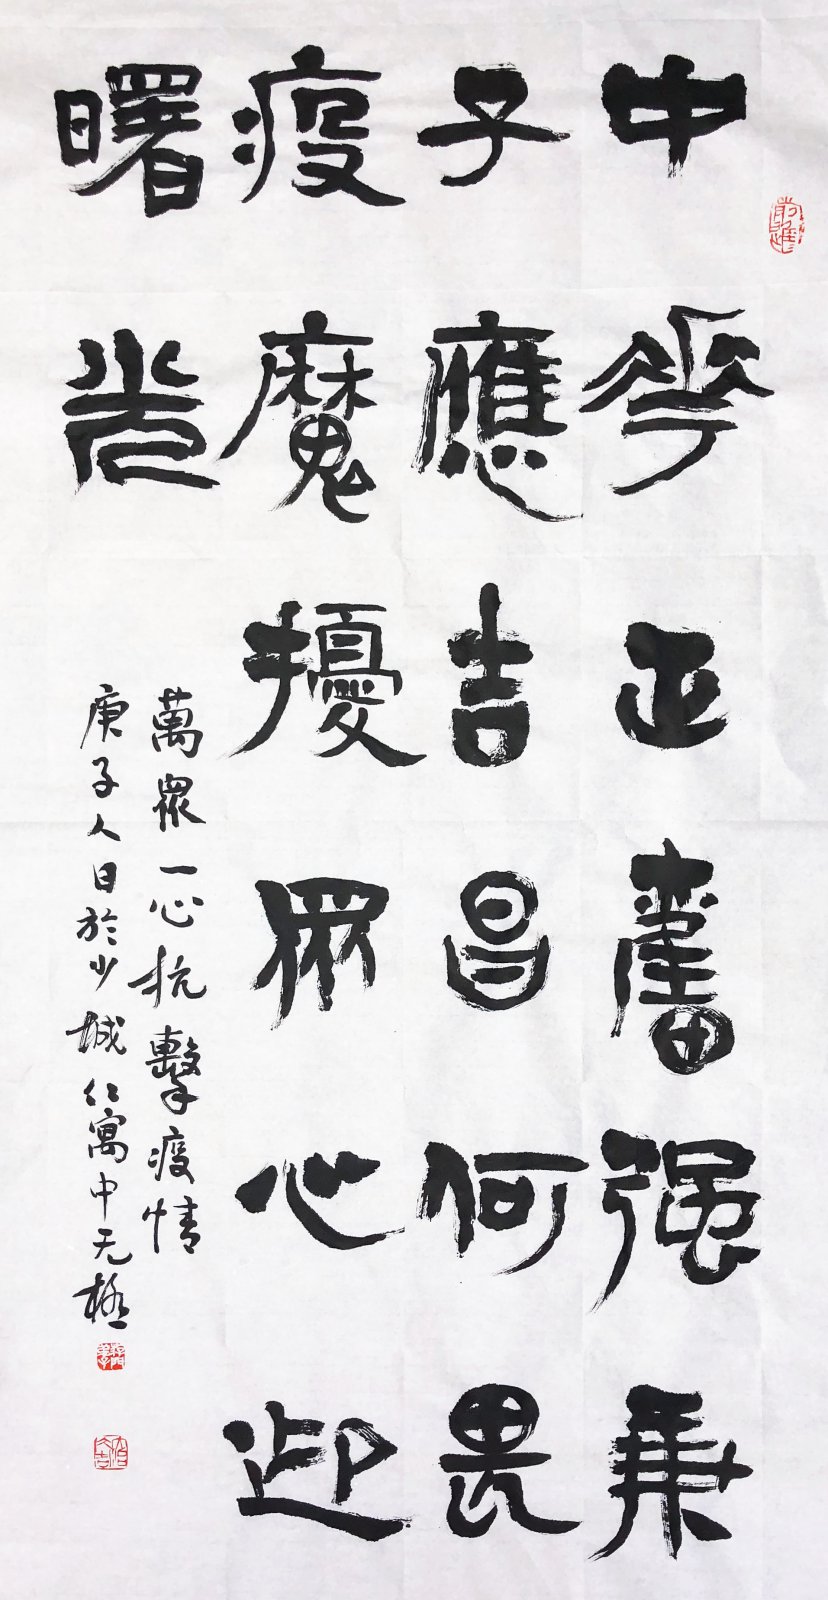 中華正奮强庚
子應吉昌何畏
疫魔擾眾心迎
曙光
萬眾一心抗擊疫情
庚子人日於少城仁寓中无極